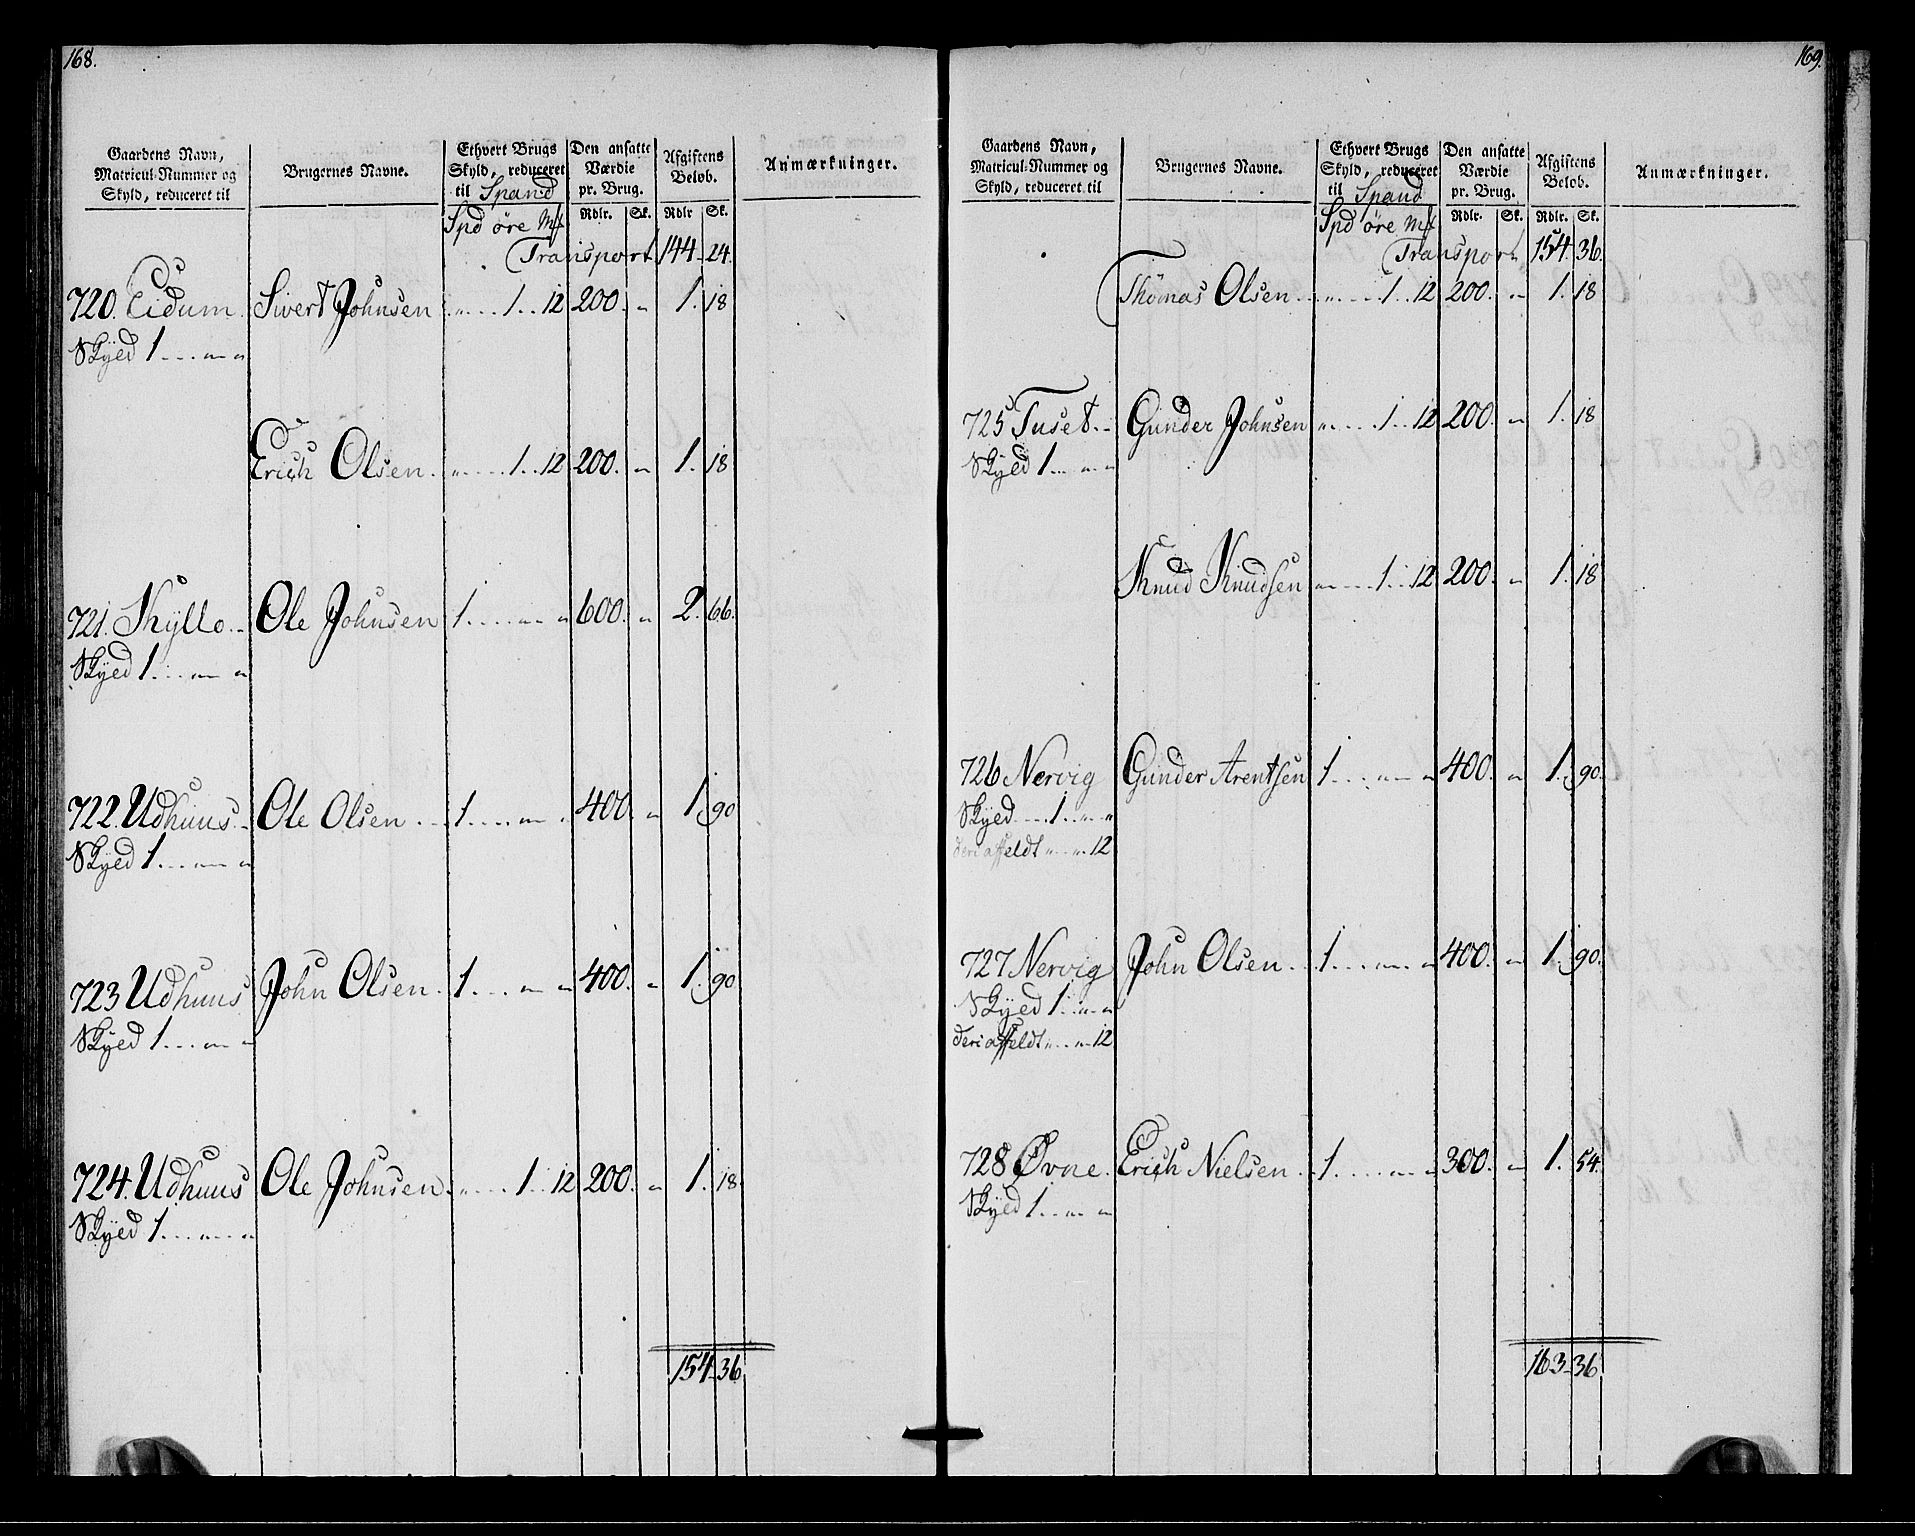 168.
Gaardens Navn, Matricul-Nummer og Skyld, reduceret til
Brugernes Navne.
Ethvert Brugs Skyld, reduceret til Spand
Den ansatte Værdie pr. Brug.
Afgiftens Beløb.
Anmærkninger.
Spd øre Mk Rdlr. Sk. Rdlr Sk.
Transport 144 24.
720. Eidum Sivert Johnsen " 1 12 200. " 1. 18
Skyed 1 " "
Erich Olsen. " 1 12 200. " 1. 18
721. Skyllo Ole Johnsen 1 " " 600. " 2. 66.
Skyed 1 " "
722. Udhuus Ole Olsen 1 " " 400. " 1. 90
Skyed 1 " "
723 Udhuus John Olsen. 1 " " 400. " 1. 90
Skyed 1 " "
724. Udhuus Ole Johnsen. " 1 12 200. " 1. 18.
Skyed 1 " "
154 36
169.
Gaardens Navn, Matricul-Nummer og Skyld, reduceret til
Brugernes Navne.
Ethvert Brugs Skyld, reduceret til Spand
Den ansatte Værdie pr. Brug.
Afgiftens Beløb.
Anmærkninger.
Spd øre Mk Rdlr. Sk. Rdlr. Sk.
Transport 154. 36.
Thomas Olsen " 1 12 200. " 1. 18
725 Tuset. Gunder Johnsen " 1 12 200. " 1. 18
Skyed 1 " "
Knud Knudsen " 1 12 200. " 1. 18
726 Nervig Gunder Arentsen 1 " " 400. " 1. 90.
Skyed 1 " "
deri affeldt " " 12
727 Nervig John Olsen 1 " " 400. " 1. 90.
Skyed 1 " "
deri affeldt " " 12
728 Øvne. Erich Nielsen 1 " " 300. " 1. 54.
Skyed 1 " "
163 36